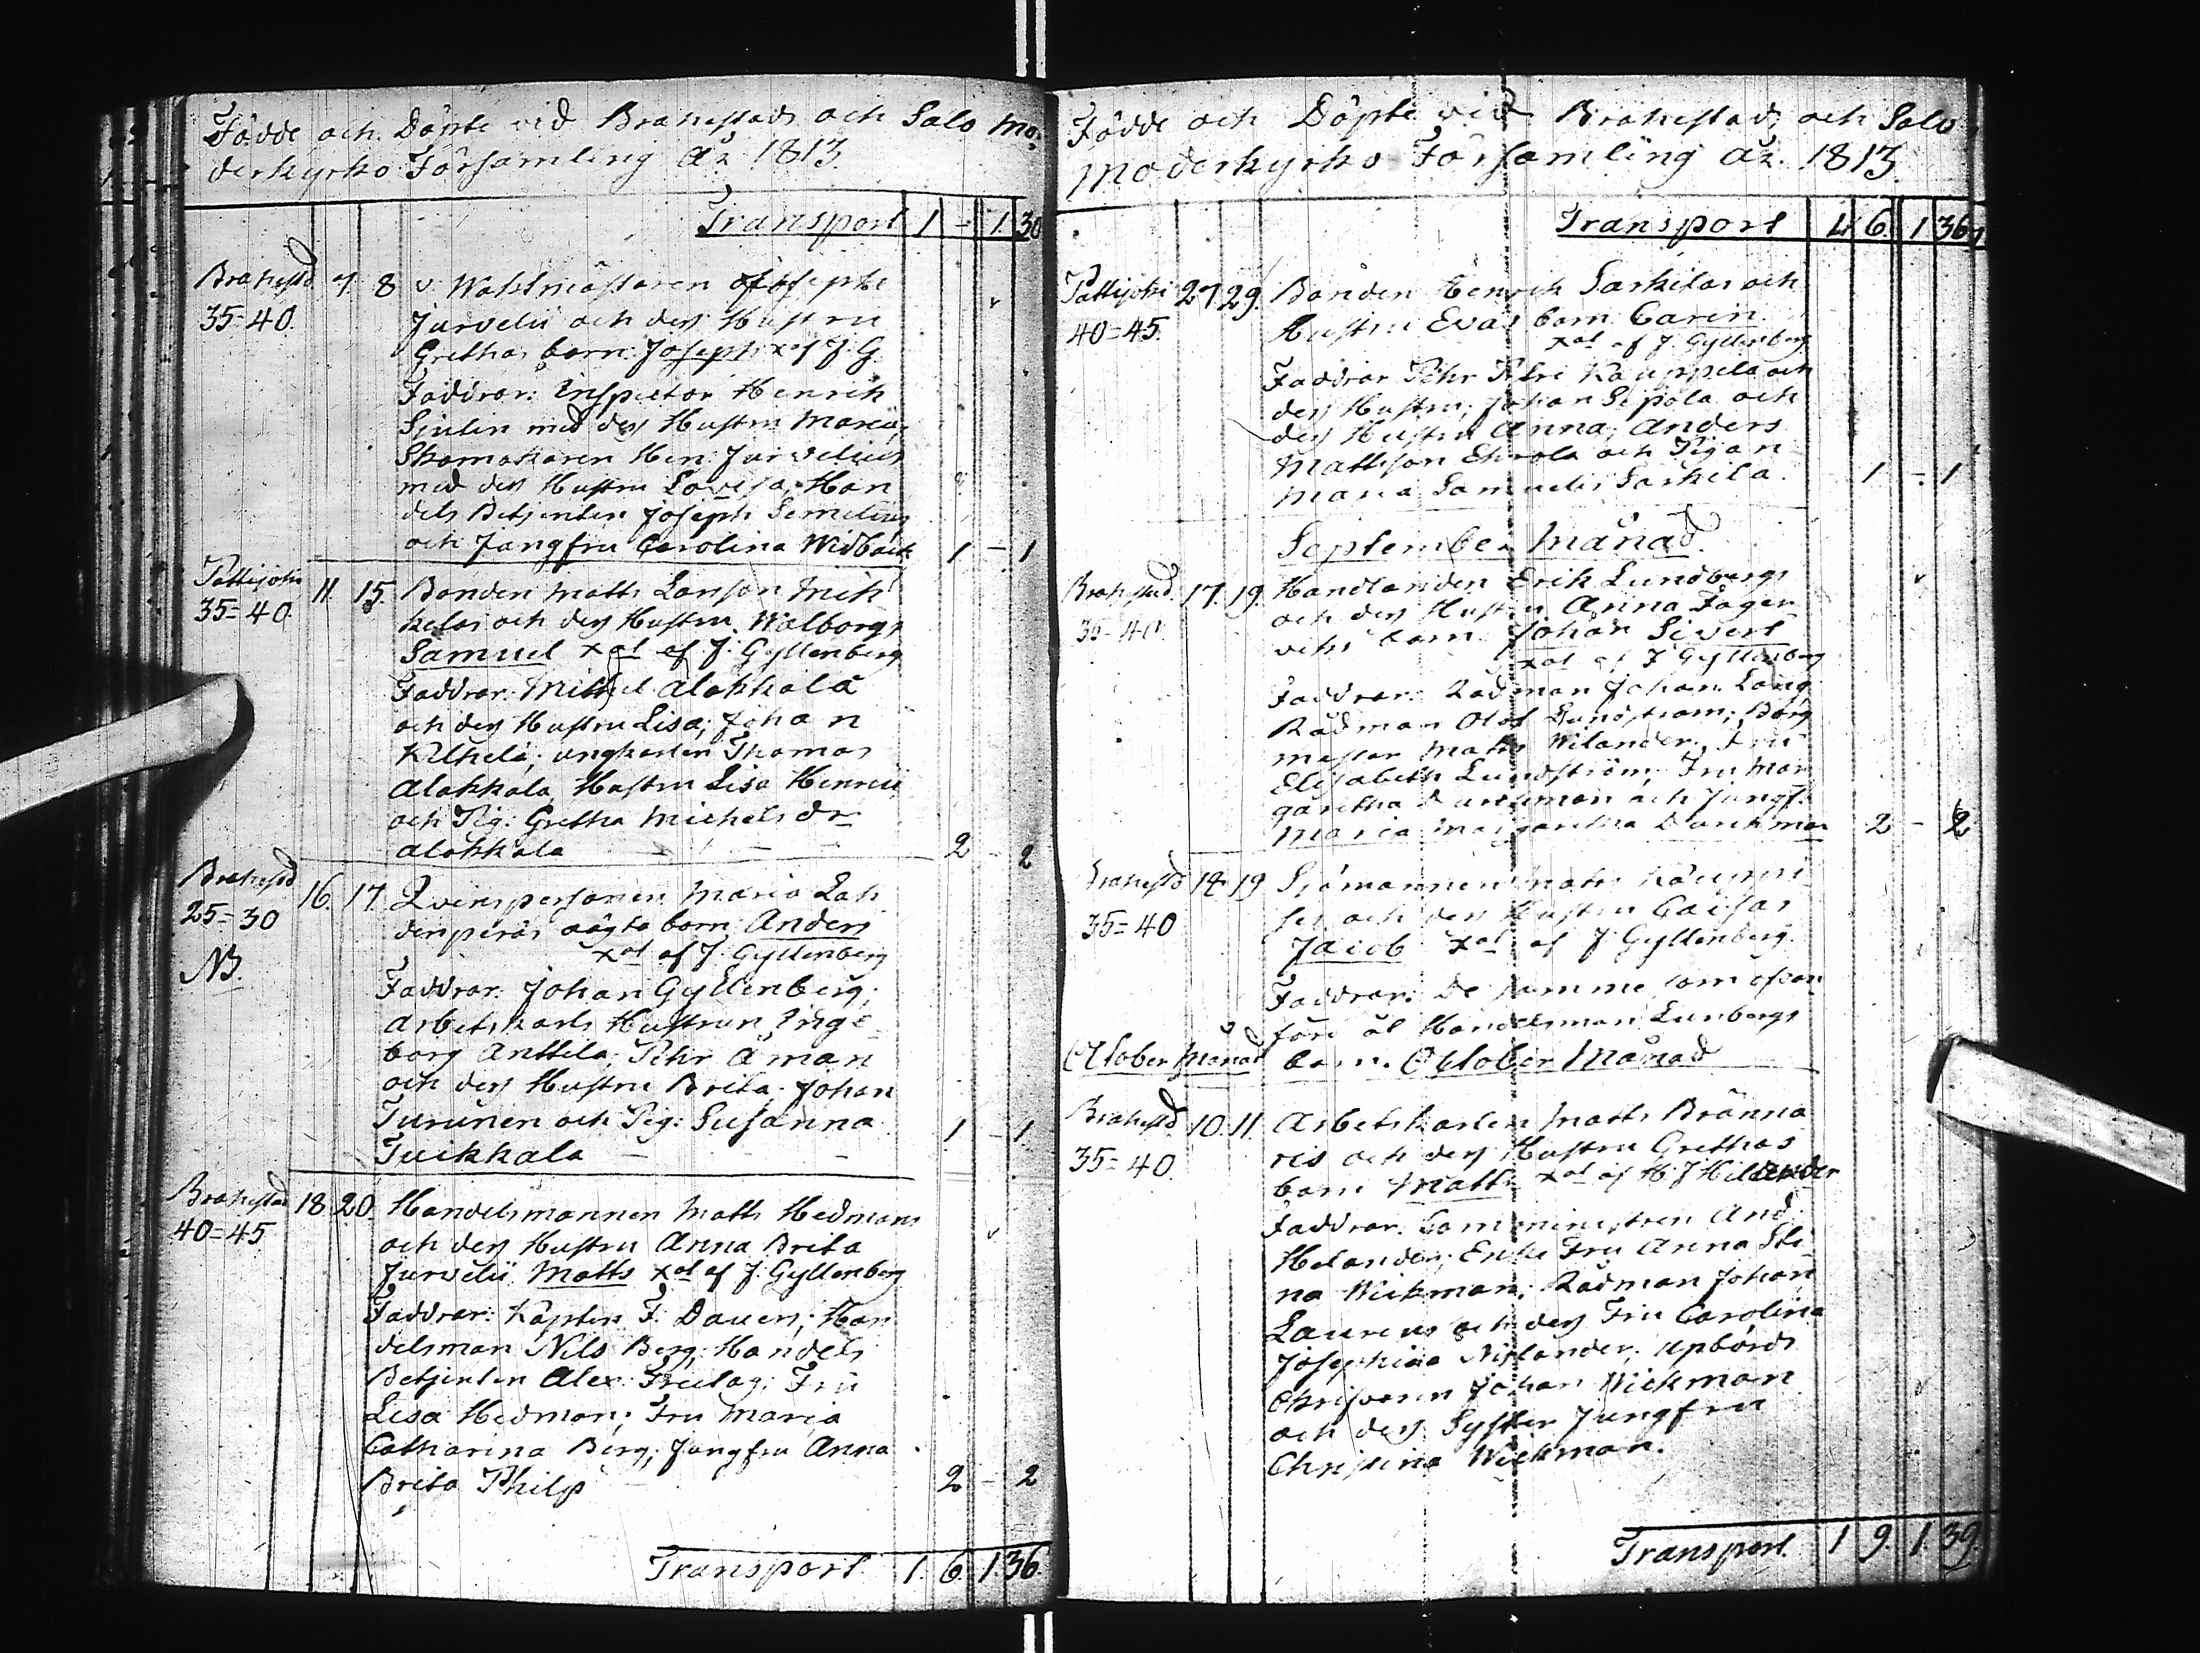 Födde och Döpte vid Brahestads och Salo Mo-
derkyrko Församling År 1813
Transport 1 - 1. 30
Brahestd 7 8 v. Wahtmästaren
35=40. Jurvelii och des Hustru
Grethas barn Joseph xnt af J. G.
Faddrar: Inspector Henrik
Sjulin med des Hustru Maria,
Skomakaren Hen: Jurvelius
med des Hustru Lovisa, Han
dels Betjenten Joseph Simelius
och Jungfru Carolina Widbäck 1 - 1
Pattijoki 11. 15. Bonden Matts Larsson Mik
35=40. kelas och des Hustru Walborgs
Samuel xnt af J: Gyllenberg
Faddrar: Mikel Alakkala
och des Hustru Lisa, Johan
Kilkelä; ungkarlen Thomas
Alakkala, Hustru Lisa Henrici
och Pig: Gretha Michelsdr
Alakkala 2 - 2
Brahestd 16. 17 Qvinspersonen Maria Lah
25=30 denperäs oägta barn Anders
NB. xnt af J. Gyllenberg
Faddrar: Johan Gyllenberg,
Arbetskarls Hustrun Inge
borg Anttila. Pehr Åman
och des Hustru Brita. Johan
Turunen och Pig: Susanna 1 - 1
Tuikkala
Brahestad 18 20. Handelsmannen Matts Hedmans
40=45 och des Hustru Anna Brita
Jurvelii Matts xnt af J. Gyllenberg
Faddrar: Kapten F. Dauer; Han
delsman Nils Berg; Handels
Betjenten Alex: Freitag; Fru
Lisa Hedman; Fru Maria
Catharina Berg; Jungfru Anna
Brita Philp 2 - 2
Transport 1. 6. 1. 36.
Födde och Döpte vid Brahestads och Salo
Moderkyrko Församling År. 1813
Transport 6. 1 36
Pattijoki 27 29. Bonden Henrik Sarkilas och
40=45. Hustru Evas barn Carin
xnt af J. Gyllenberg
Faddrar Pehr Petri Kauppila och
des Hustru; Johan Sipola och
des Hustru Anna; Anders
Mattsson och Pigan
Maria Samuelis Sarkila. 1 - 1
September Månad.
Brahestad. 17. 19. Handlanden Erik Lundbergs
35=40. och des Hustru Anna Fager
viks barn Johan Sivert
xnt af J Gyllenberg
Faddrar: Rådman Johan Lang
Rådman Olof Lundström; Borg
mestar Matts Wilander, Fru
Elisabeth Lundström; Fru Mar
garetha och Jungf:
Maria Margaretha 2 - 2
Brahestd 19 Sjömannen Matts
35=40 och des Hustru Caisas
Jacob xnt af J: Gyllenberg.
Faddrar: De samme som ofvan
före åt Handelsman Lunbergs
October Månad barn. October Månad
Brahestd. 10. 11. Arbetskarlen Matts Bränna
35=40. ris och des Hustru Grethas
barn Matts xnt af H J Helander
Faddrar. Comministren And:
Helander; Enke Fru Anna Sti
na Wickman; Rådman Johan
Laurin och des Fru Carolina
Josephina upbörds
Skrifvaren Johan Wickman
och des Syster Jungfru
Christina Wickman.
Transport. 1 9. 1. 39.